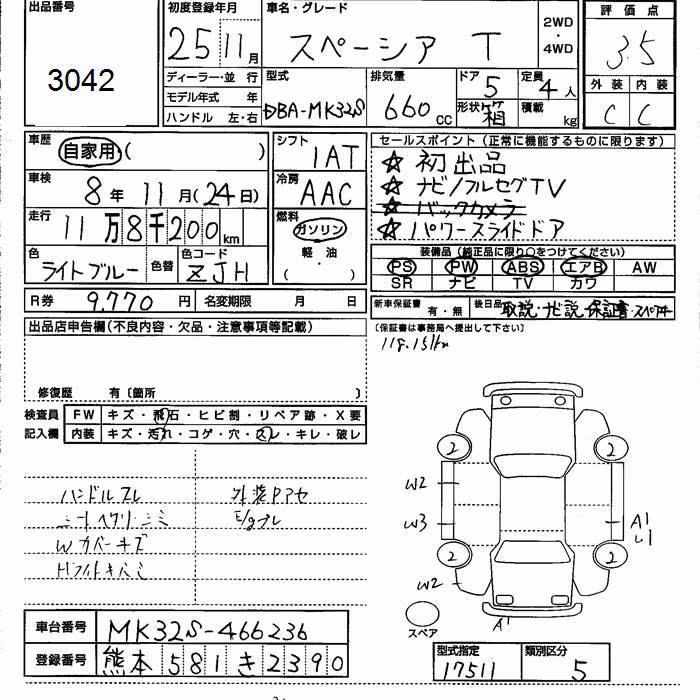 出品番号
3042
初度登録年月
25 11月
車名・グレード
スペーシア T
2WD
・
4WD
評価点
3.5
外装 内装
C C
ディーラー・並 行
モデル年式 年
ハンドル 左・右
型式
DBA-MK32S
排気量
660cc
ドア
5
形状 箱
定員
4人
積載
kg
車歴
自家用( )
シフト
IAT
車検
8年 11月(24日)
冷房
AAC
走行
11万8千200km
燃料
ガソリン
軽 油
( )
色
ライトブルー
色替
色コード
ZJH
R券 9,770円 名変期限 月 日
セールスポイント(正常に機能するものに限ります)
☆ 初出品
☆ ナビ/フルセグTV
☆ バックカメラ
☆ パワースライドドア
装備品(純正品に限り○をつけてください)
PS PW ABS エアB AW
SR ナビ TV カワ
新車保証書 有・無 後日品 取説・ナビ説・保証書・スペアキー
(保証書は事務局へ提出して下さい)
118,151km
出品店申告欄(不良内容・欠品・注意事項等記載)
修復歴 有〔箇所 〕
検査員
記入欄
FW キズ・飛石・ヒビ割・リペア跡・X要
内装 キズ・汚れ・コゲ・穴・スレ・キレ・破レ
ハンドルスレ
シートヘタリ・シミ
Wカバーキズ
外装PアセE/gブレ
2 2
W2
W3
A1
U1
2 2
W2
A1
スペア
車台番号 MK32S-466236
登録番号 熊本581き2390
型式指定
17511
類別区分
5